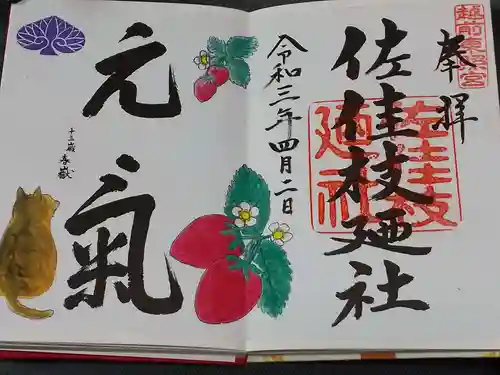 奉拝
越前東照宮
佐佳枝廼社
佐佳枝廼社
令和三年四月二日
元氣
十三歳 春嶽